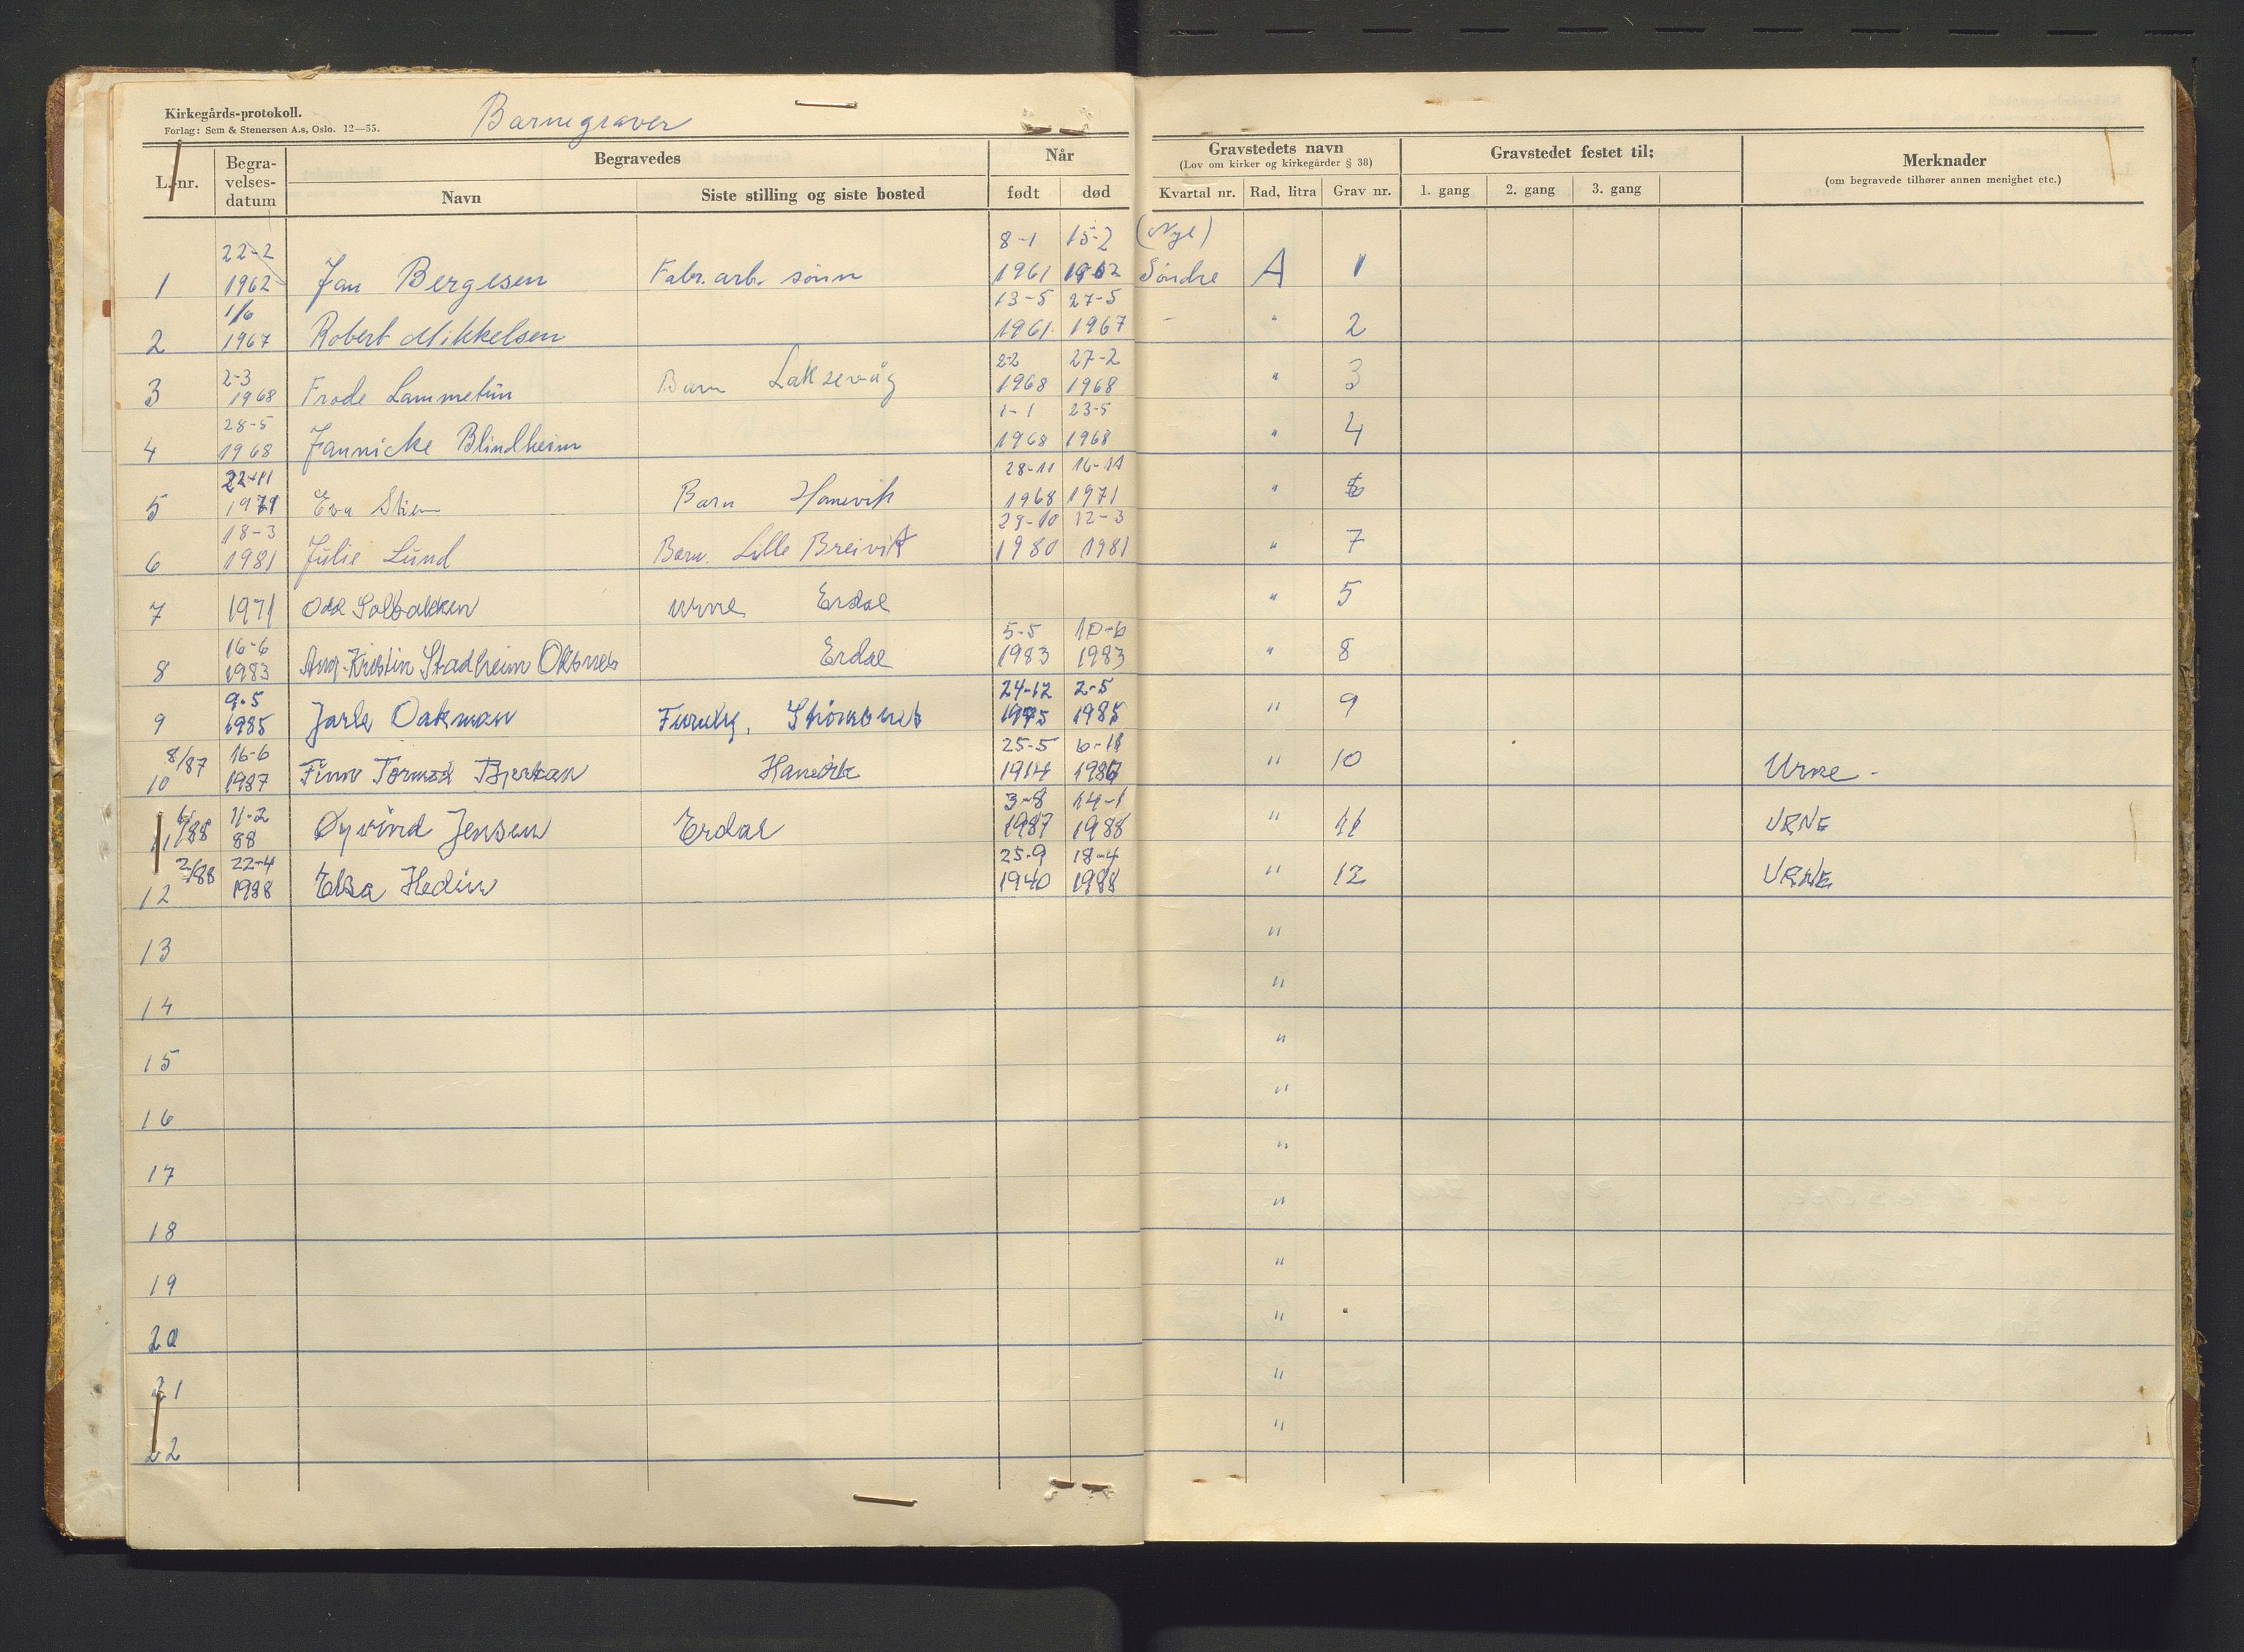 Kirkegårds-protokoll.
Forlag: Sem & Stenersen A.s, Oslo. 12—55.
Barnegraver
L.nr. Begravelses-datum Begravedes Når Gravstedets navn Gravstedet festet til: Merknader
(Lov om kirker og kirkegårder § 38) (om begravede tilhører annen menighet etc.)
Navn Siste stilling og siste bosted født død Kvartal nr. Rad, litra Grav nr. 1. gang 2. gang 3. gang
22-2 8-1 15-2 (Nye)
1 1962 Jan Bergesen Fabr. arb. sønn 1961 1962 Søndre A 1
1/6 13-5 27-5
2 1967 Robert Mikkelsen 1961. 1967 - " 2
2-3 2-2 27-2
3 1968 Frode Lammetun Barn Laksevåg 1968 1968 " 3
28-5 1-1 23-5
4 1968 Jannicke Blindheim 1968 1968 " 4
22-11 28-11 16-11
5 1971 Eva Barn Hanevik 1968 1971 " 6
18-3 29-10 12-3
6 1981 Julie Lund Barn. Lille Breivik 1980 1981 " 7
7 1971 Odd Solbakken urne Erdal " 5
16-6 5-5 10-6
8 1983 Ann-Kristin Stadheim Erdal 1983 1983 " 8
9-5 24-12 2-5
9 1985 Jarle Oakman 1975 1985 " 9
8/87 16-6 25-5 6-11
10 1987 Finn Tormod Hanevik 1914 1986 " 10 Urne -
/88 11-2 3-8 14-1
11 88 Øyvind Jensen Erdal 1987 1988 " 11 URNE
2/88 22-4 25-9 18-4
12 1988 Elsa Hedin 1940 1988 " 12 URNE
13 "
14 "
15 "
16 "
17 "
18 "
19 "
20 "
21 "
22 "